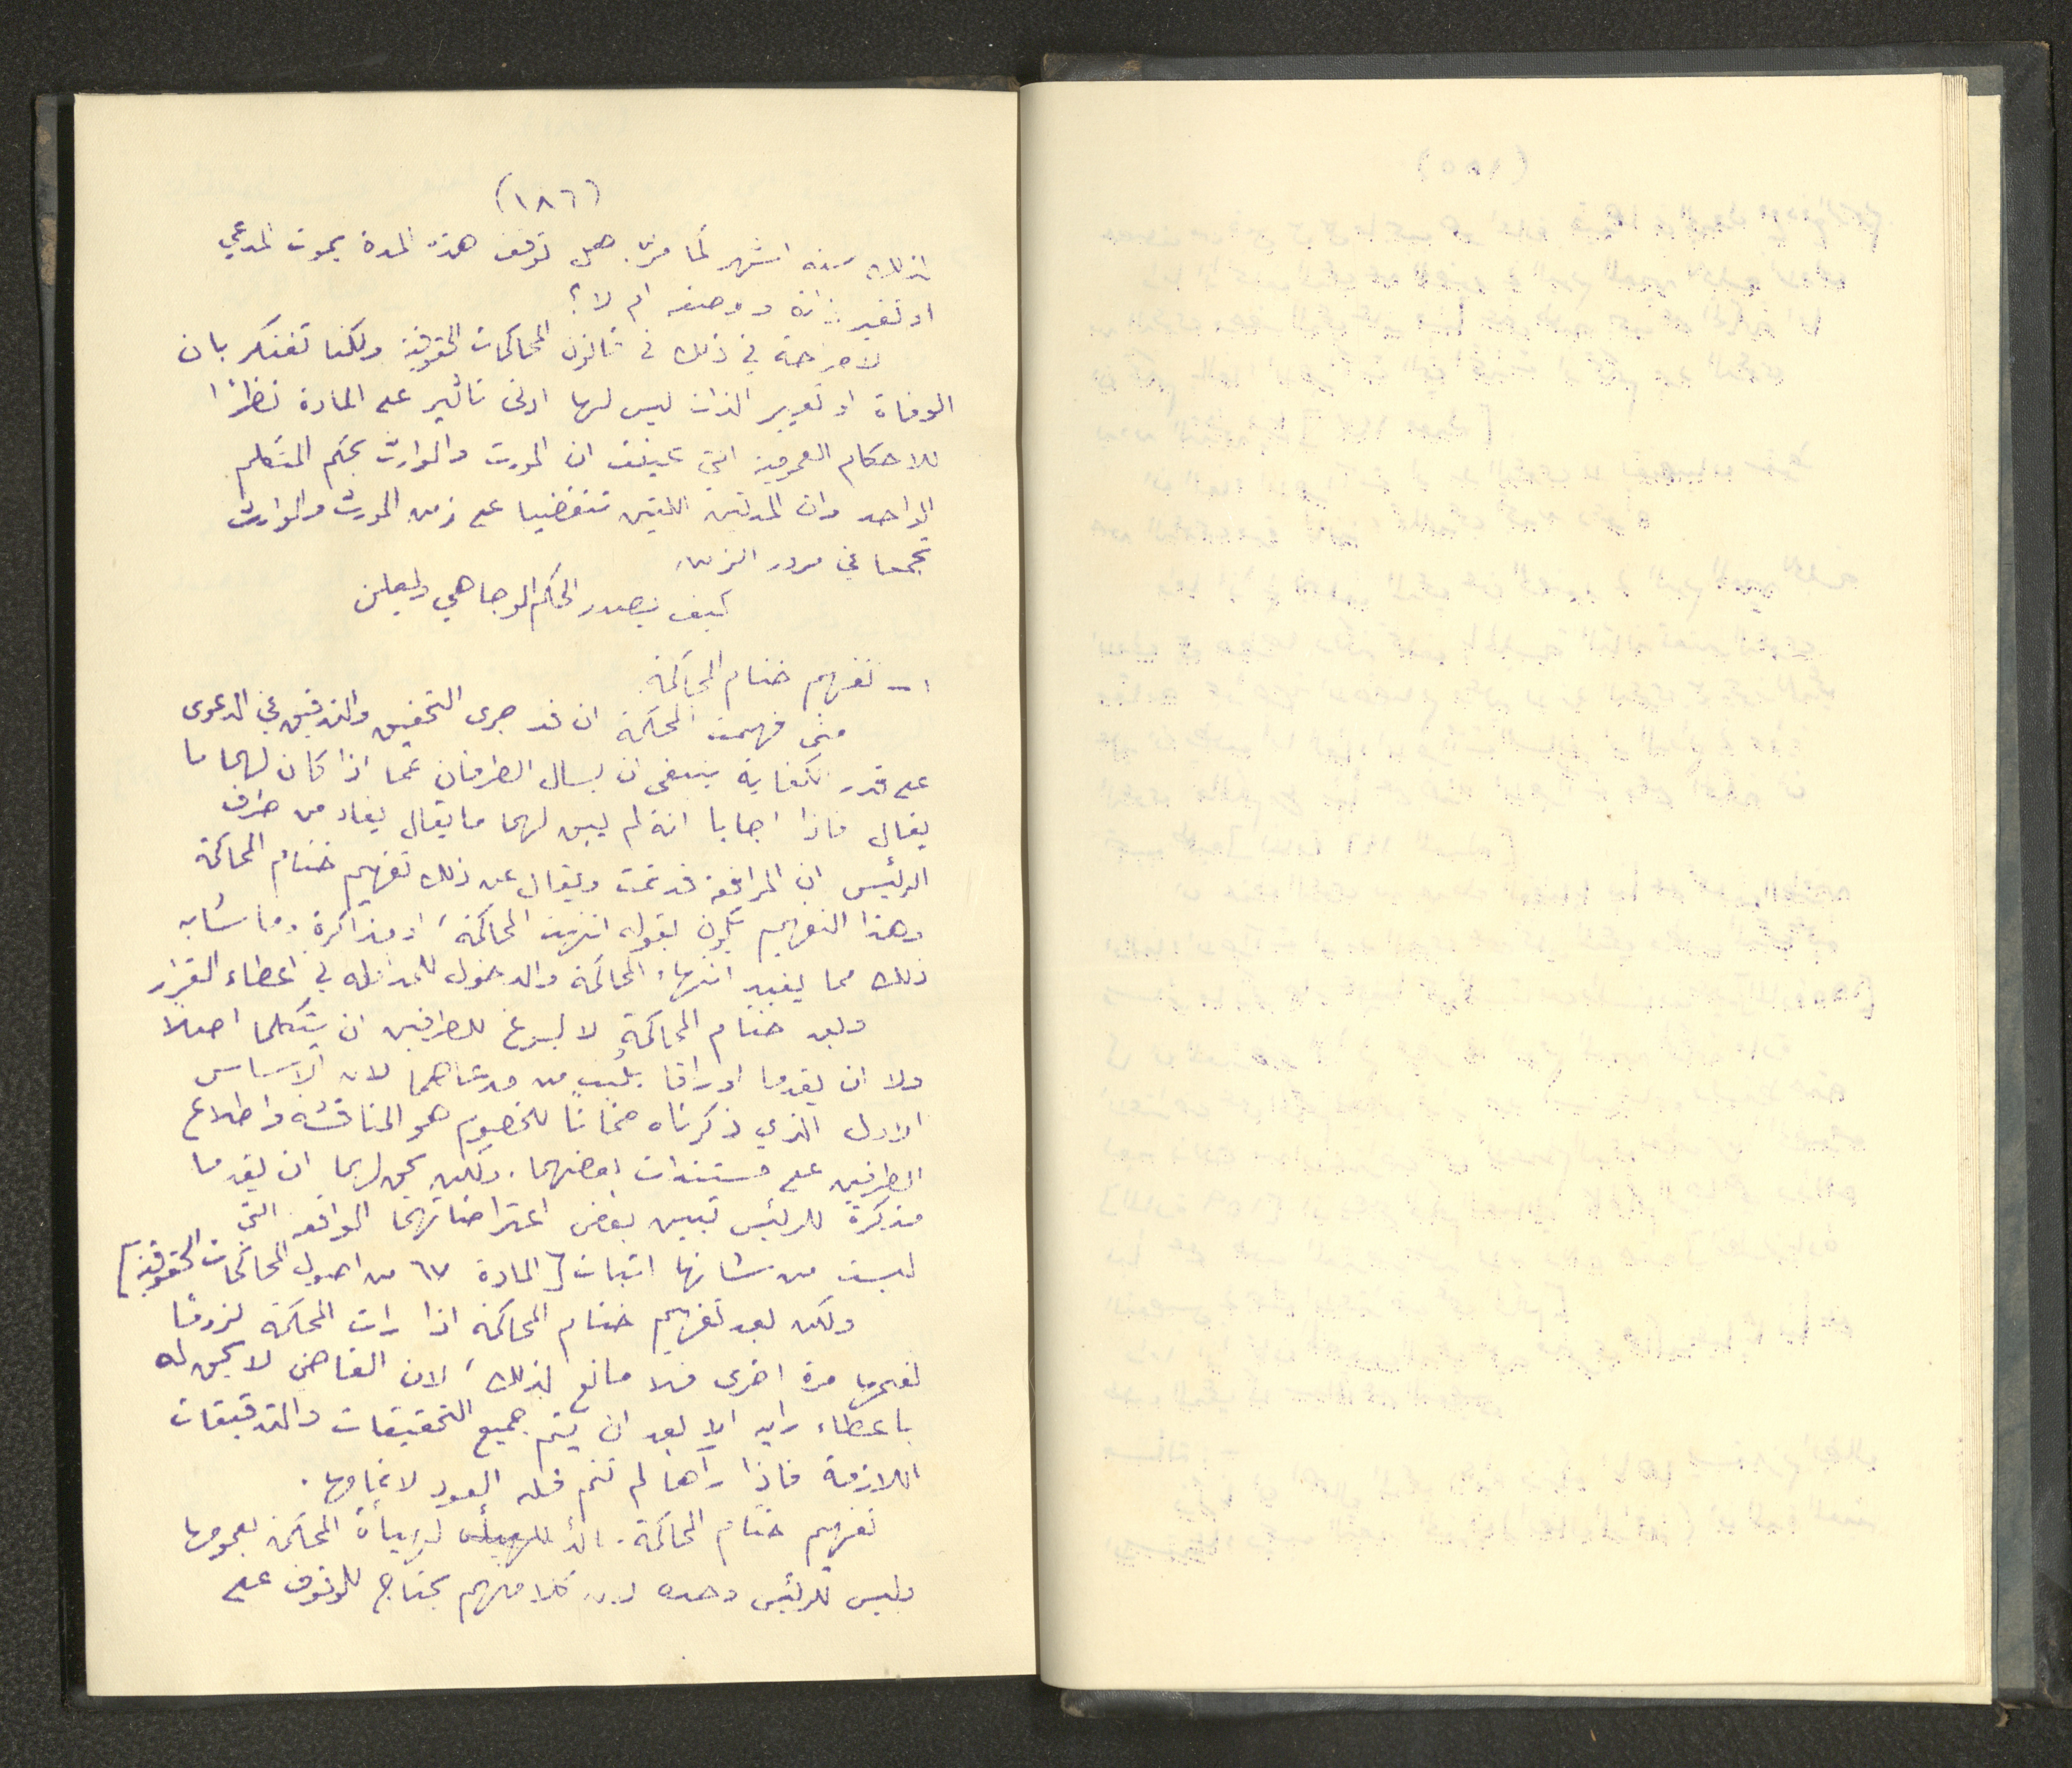 (١٨٦)
لذلك ستة اشهر كما مرّ. هل توقف هذه المدة بموت المدعي
او تغير ذاته ووصفه ام لا؟
لا صراحة في ذلك في قانون المحاكمات الحقوقية ولكنا تفتكر بان
الوفاة او تغيير الذات ليس لها ادنى تاثير على المادة نظرًا
للاحكام العمومية التي عينت ان المورث والوارث بحكم المتكلم
الواحد وان المدتين اللتين تنقضيا على زمن المورث والوارث
تجمعا في مرور الزمن
كيف يصدر الحكم الوجاهي ويعلن
١- تفهيم ختام المحاكمة
متى فهمت المحكمة ان قد جرى التحقيق والتدقيق في الدعوى
على قدر الكفاية ينبغي ان يسال الطرفان عما اذا كان لهما ما
يقال فاذا اجابا انه لم يبق لهما ما يقال يفاد من طرف
الرئيس ان المرافعة قد تمت ويقال عن ذلك تفهيم ختام المحاكمة
وهذا التفهيم يكون بقوله انتهت المحاكمة، او مذاكرة وما شابه
ذلك مما يفيد انتهاء المحاكمة والدخول للمداولة في اعطاء القرار
وبعد ختام المحاكمة لا يسوغ للطرفين ان يتكلما اصلا
ولا ان يقدما اوراقا بثبت من مدعاهما لان الاساس
الاول الذي ذكرناه ضمانًا للخصوم هو المناقشة واطلاع
الطرفين على مستندات بعضهما. ولكن يحق لهما ان يقدما
مذكرة للرئيس تبين بعض اعتراضاتهما الواقعة التي
ليست من شانها اثبات [المادة ٦٧ من اصول المحاكمات الحقوقية]
ولكن بعد تفهيم ختام المحاكمة اذا رات المحكمة لزومًا
لفتحها مرة اخرى فلا مانع لذلك، لان القاضي لا يحق له
باعطاء رايه الا بعد ان يتم جميع التحقيقات والتدقيقات
اللازمة فاذا رآها لم تتم فله العود لاتمامها.
تفهيم ختام المحاكمة. لهيأة المحكمة بعمومها
وليس للرئيس وحده لان كلا منهم يحتاج للوقوف على